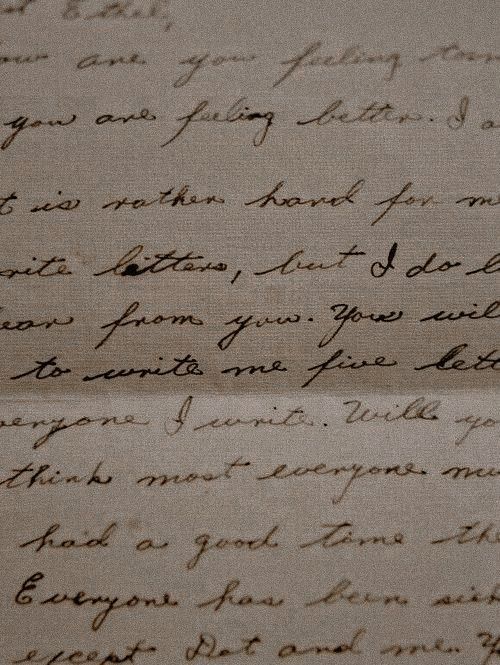 Ethel,
are you feeling
you are feeling better. I
is rather hard for me
letters, but I do
from you. You will
to write me five
I write. Will
think most everyone
had a good time
Everyone has been sick
except Dot and me.